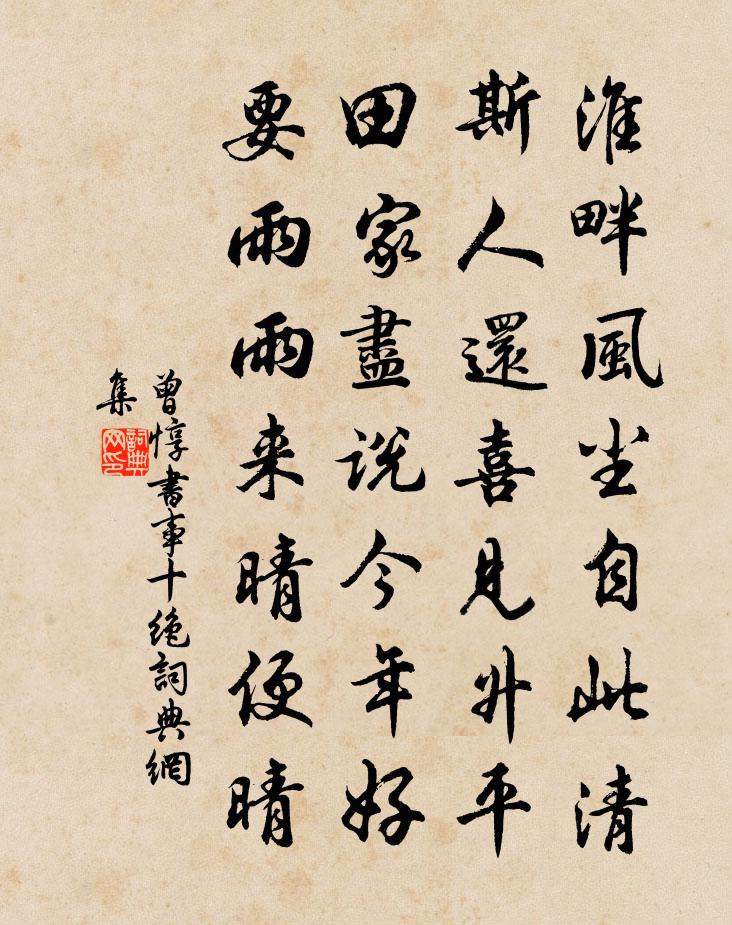 淮畔風尘自此清
斯人還喜見升平
田家盡説今年好
要雨雨来晴便晴
曾惇書事十绝詞典網
集
詞典
网印